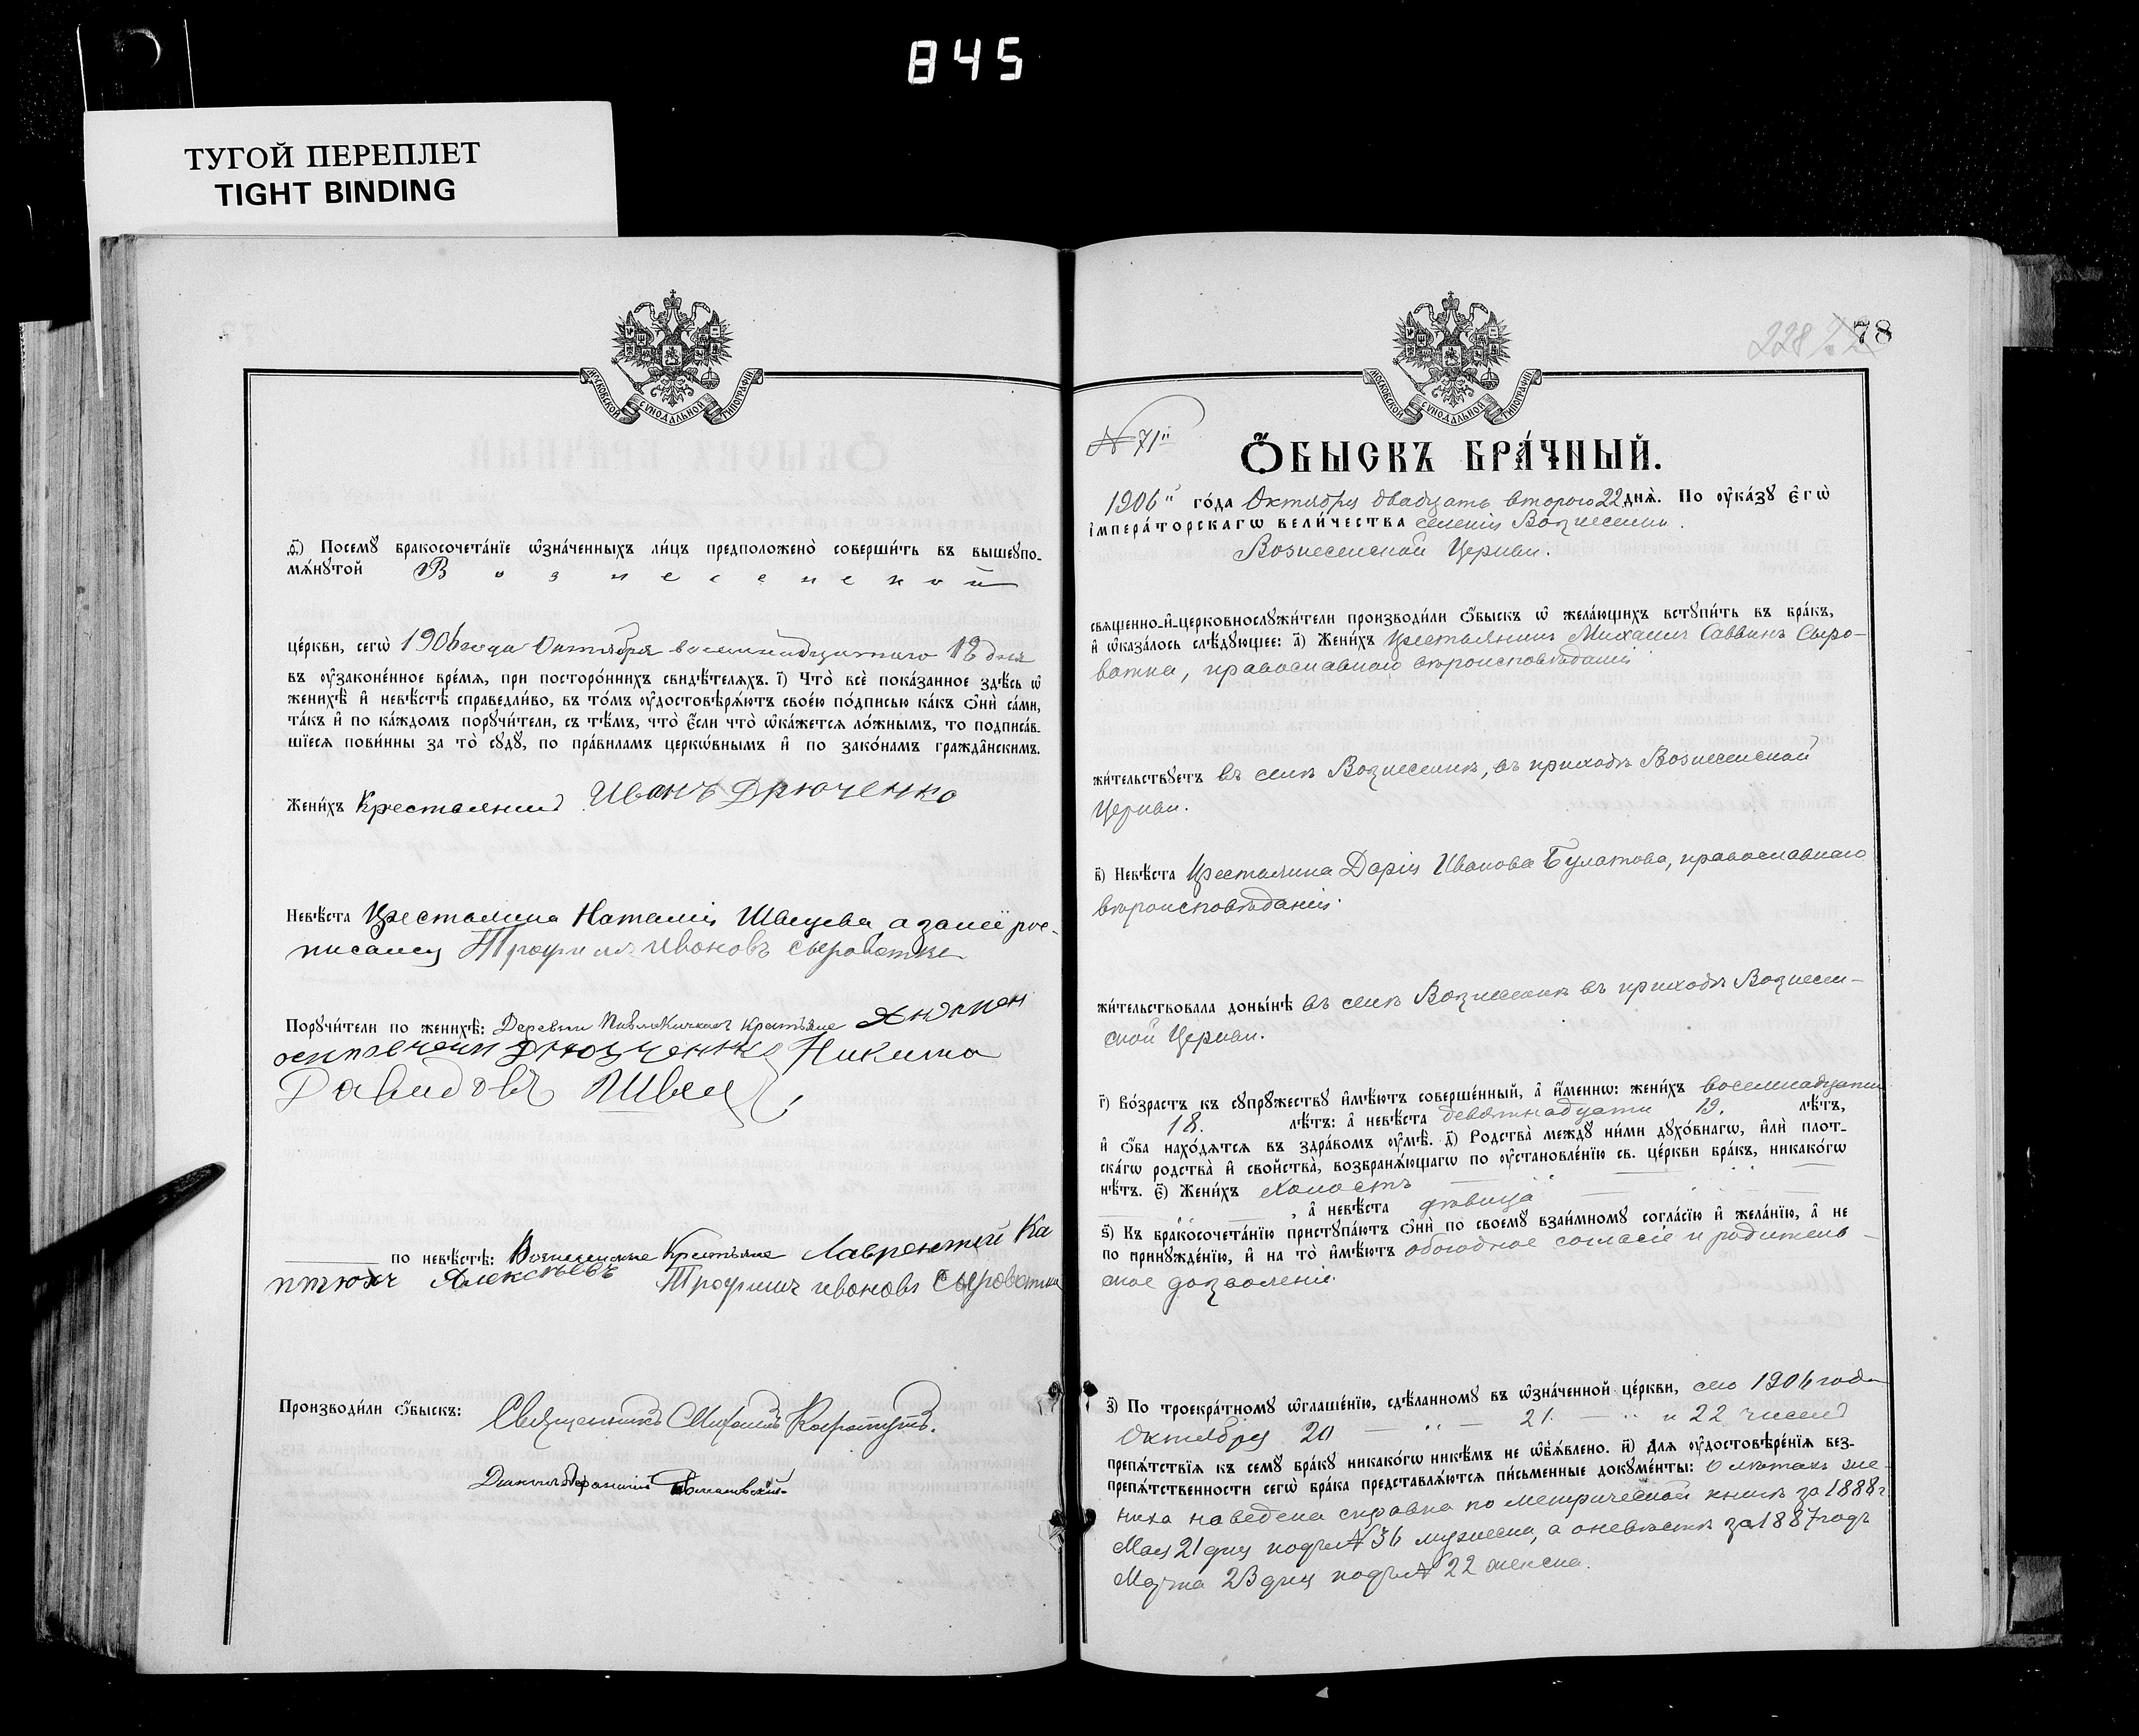 845
ТУГОЙ ПЕРЕПЛЕТ
TIGHT BINDING
МОСКОВСКОЙ СѴНОДАЛЬНОЙ ТИПОГРАФІИ
ѳ҃) Посемꙋ̀ бракосочета́нїе ѡ҆зна́ченныхъ ли́цъ предположено̀ соверши́ть въ вышеупо-
мѧ́нꙋтой Вознесенской
це́ркви, сегѡ̀ 1906 года Октября восемнадцатаго 18 дня
въ ᲂу҆законе́нное вре́мѧ, при посторо́ннихъ свидѣ́телѧхъ. і҃) Что̀ всѐ пока́занное здѣ́сь ѡ҆
женихѣ̀ и҆ невѣ́стѣ справедли́во, въ то́мъ ᲂу҆достовѣрѧ́ютъ свое́ю по́дписью ка́къ ѻ҆нѝ са́ми,
та́къ и҆ по ка́ждомъ порꙋчи́тели, съ тѣ́мъ, что̀ є҆́сли что̀ ѡ҆ка́жетсѧ ло́жнымъ, то подписа́в-
шїесѧ пови́нны за то̀ сꙋдꙋ̀, по пра́виламъ церкѡ́внымъ и҆ по зако́намъ гражда̂нскимъ.
Жени́хъ Крестьянинъ Иванъ Дрюченко
Невѣ́ста Крестьянка Наталія Швецева, а за неё рос-
писался Трофимъ Ивановъ Сыроватка
Порꙋчи́тели по женихѣ̀: Деревни крестьяне
Дрюченко Никита
Давидовъ Швец
по невѣ́стѣ: Вознесенскіе Крестьяне Лаврентій Ка
птюхъ Алексѣевъ Трофимъ Ивановъ Сыроватка
Производи́ли ѻ҆́быскъ: Священникъ Михаилъ
Діаконъ
228
78
МОСКОВСКОЙ СѴНОДАЛЬНОЙ ТИПОГРАФІИ
№ 71й
Ѻ҆БЫСКЪ БРА́ЧНЫЙ.
1906го го́да Октября двадцать второго 22 днѧ̀. По ᲂу҆ка́зꙋ Є҆гѡ̀
і҆мпера́торскагѡ вели́чества селенія Вознесенки
Вознесенской Церкви.
свѧщенно-и҆-церковнослꙋжи́тели производи́ли ѻ҆́быскъ ѡ҆ жела́ющихъ встꙋпи́ть въ бра́къ,
и҆ ѡ҆каза́лось слѣ́дꙋющее: а҃) Жени́хъ Крестьянинъ Михаилъ Саввинъ Сыро-
ватка, православнаго вѣроисповѣданія
жи́тельствꙋетъ въ селѣ Вознесенкѣ, въ приходѣ Вознесенской
Церкви.
в҃) Невѣ́ста Крестьянка Дарія Иванова Булатова, православнаго
вѣроисповѣданія.
жи́тельствовала доны́нѣ въ селѣ Вознесенкѣ въ приходѣ Вознесен-
ской Церкви.
г҃) Во́зрастъ къ сꙋпрꙋ́жествꙋ и҆мѣ́ютъ соверше́нный, а҆ и҆́меннѡ: жени́хъ восемнадцати
18. лѣ́тъ: а҆ невѣ́ста девятнадцати 19. лѣ́тъ,
и҆ ѻ҆́ба нахо́дѧтсѧ въ здра́вомъ ᲂу҆мѣ̀. д҃) Родства̀ междꙋ̀ ни́ми дꙋхо́внагѡ, и҆лѝ плот-
ска́гѡ родства̀ и҆ свойства̀, возбранѧ́ющагѡ по ᲂу҆становле́нїю св. це́ркви бра́къ, никако́гѡ
нѣ́тъ. є҃) Жени́хъ холостъ
, а҆ невѣ́ста дѣвица
ѕ҃) Къ бракосочета́нїю пристꙋпа́ютъ ѻ҆нѝ по своемꙋ̀ взаи́мномꙋ согла́сїю и҆ жела́нїю, а҆ не
по принꙋжде́нїю, и҆ на то̀ и҆мѣ́ютъ обоюдное согласіе и родитель-
ское дозволеніе.
з҃) По троекра́тномꙋ ѡ҆глаше́нїю, сдѣ́ланномꙋ въ ѡ҆зна́ченной це́ркви, сего 1906 года
Октября 20 — " — 21. — " и 22 чиселъ
препѧ́тствїѧ къ семꙋ̀ бра́кꙋ никако́гѡ никѣ́мъ не ѡ҆б̾ѧ́влено. и҃) Длѧ ᲂу҆достовѣре́нїѧ без-
препѧ́тственности сегѡ̀ бра́ка представлѧ́ютсѧ пи́сьменные докꙋме́нты: О лѣтахъ же-
ниха наведена справка по метрической книгѣ за 1888 г
Мая 21 дня подъ № 36 мужеска, а о невѣстѣ за 1887 годъ
Марта 23 дня подъ № 22 женска.